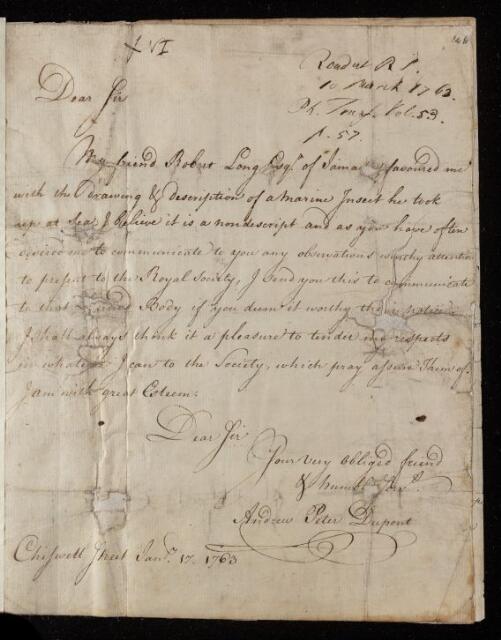 XVI
Read at R S.
10 March 1763.
Ph. Trans. Vol. 53.
p. 57.
Dear Sir
My friend Robert Long Esqr. of Jamaica favoured me
with the Drawing & Description of a Marine Insect he took
up at Sea, I believe it is a nondescript and as you have often
desired me to communicate to you any observations worthy attention
to present to the Royal Society, I send you this to communicate
to that Body if you deem it worthy their notice.
I shall always think it a pleasure to tender my respects
in whatever I can to the Society, which pray assure Them of.
I am with great Esteem,
Dear Sir
Your very obliged friend
& humble Servt.
Andrew Peter Dupont
Chiswell Street Janry. 17. 1763